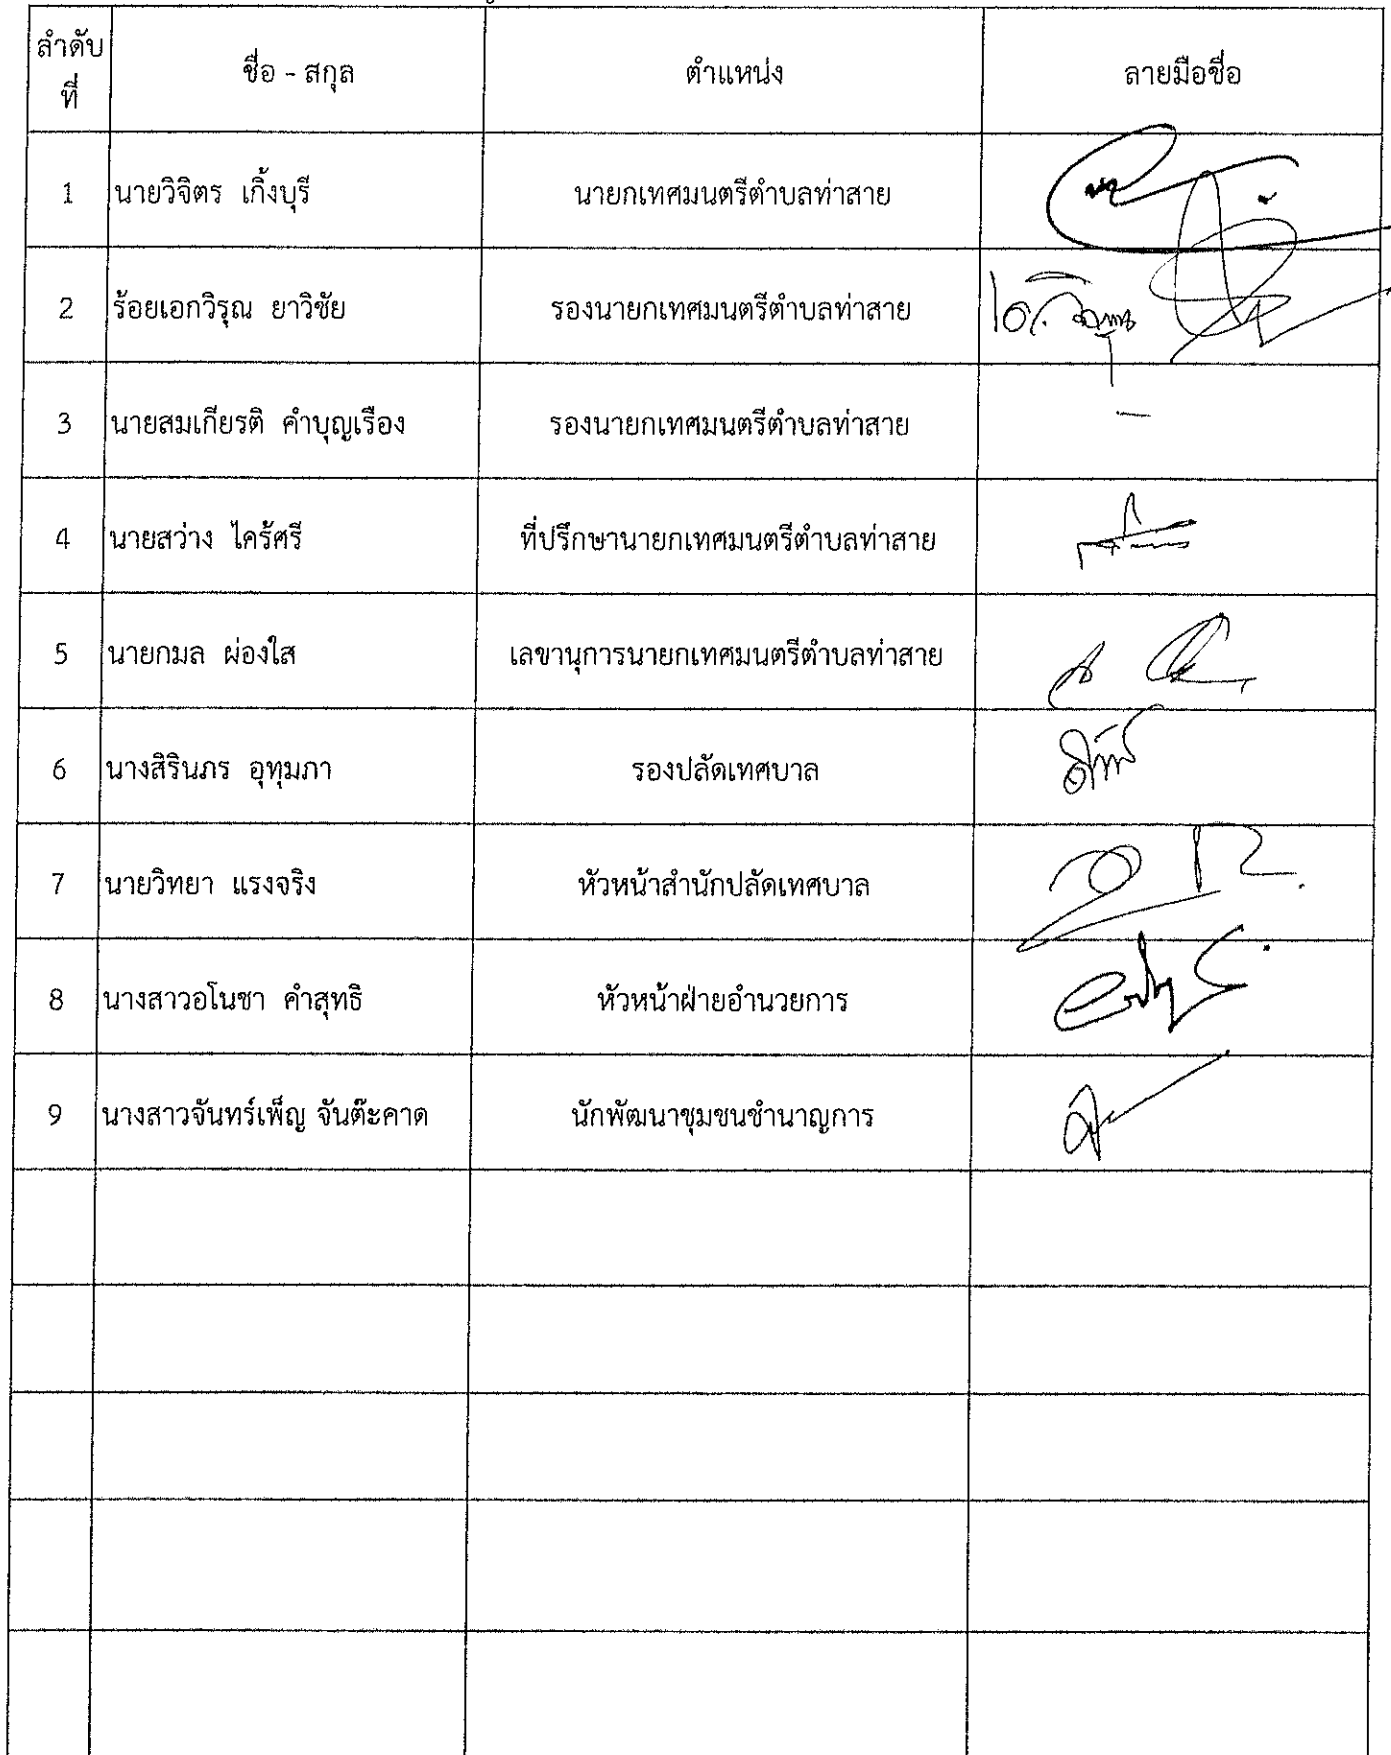 ลำดับที่ ชื่อ - สกุล ตำแหน่ง ลายมือชื่อ
1 นายวิจิตร เกิ้งบุรี นายกเทศมนตรีตำบลท่าสาย
2 ร้อยเอกวิรุณ ยาวิชัย รองนายกเทศมนตรีตำบลท่าสาย
3 นายสมเกียรติ คำบุญเรือง รองนายกเทศมนตรีตำบลท่าสาย -
4 นายสว่าง ไคร้ศรี ที่ปรึกษานายกเทศมนตรีตำบลท่าสาย
5 นายกมล ผ่องใส เลขานุการนายกเทศมนตรีตำบลท่าสาย
6 นางสิรินภร อุทุมภา รองปลัดเทศบาล
7 นายวิทยา แรงจริง หัวหน้าสำนักปลัดเทศบาล
8 นางสาวอโนชา คำสุทธิ หัวหน้าฝ่ายอำนวยการ
9 นางสาวจันทร์เพ็ญ จันต๊ะคาด นักพัฒนาชุมชนชำนาญการ